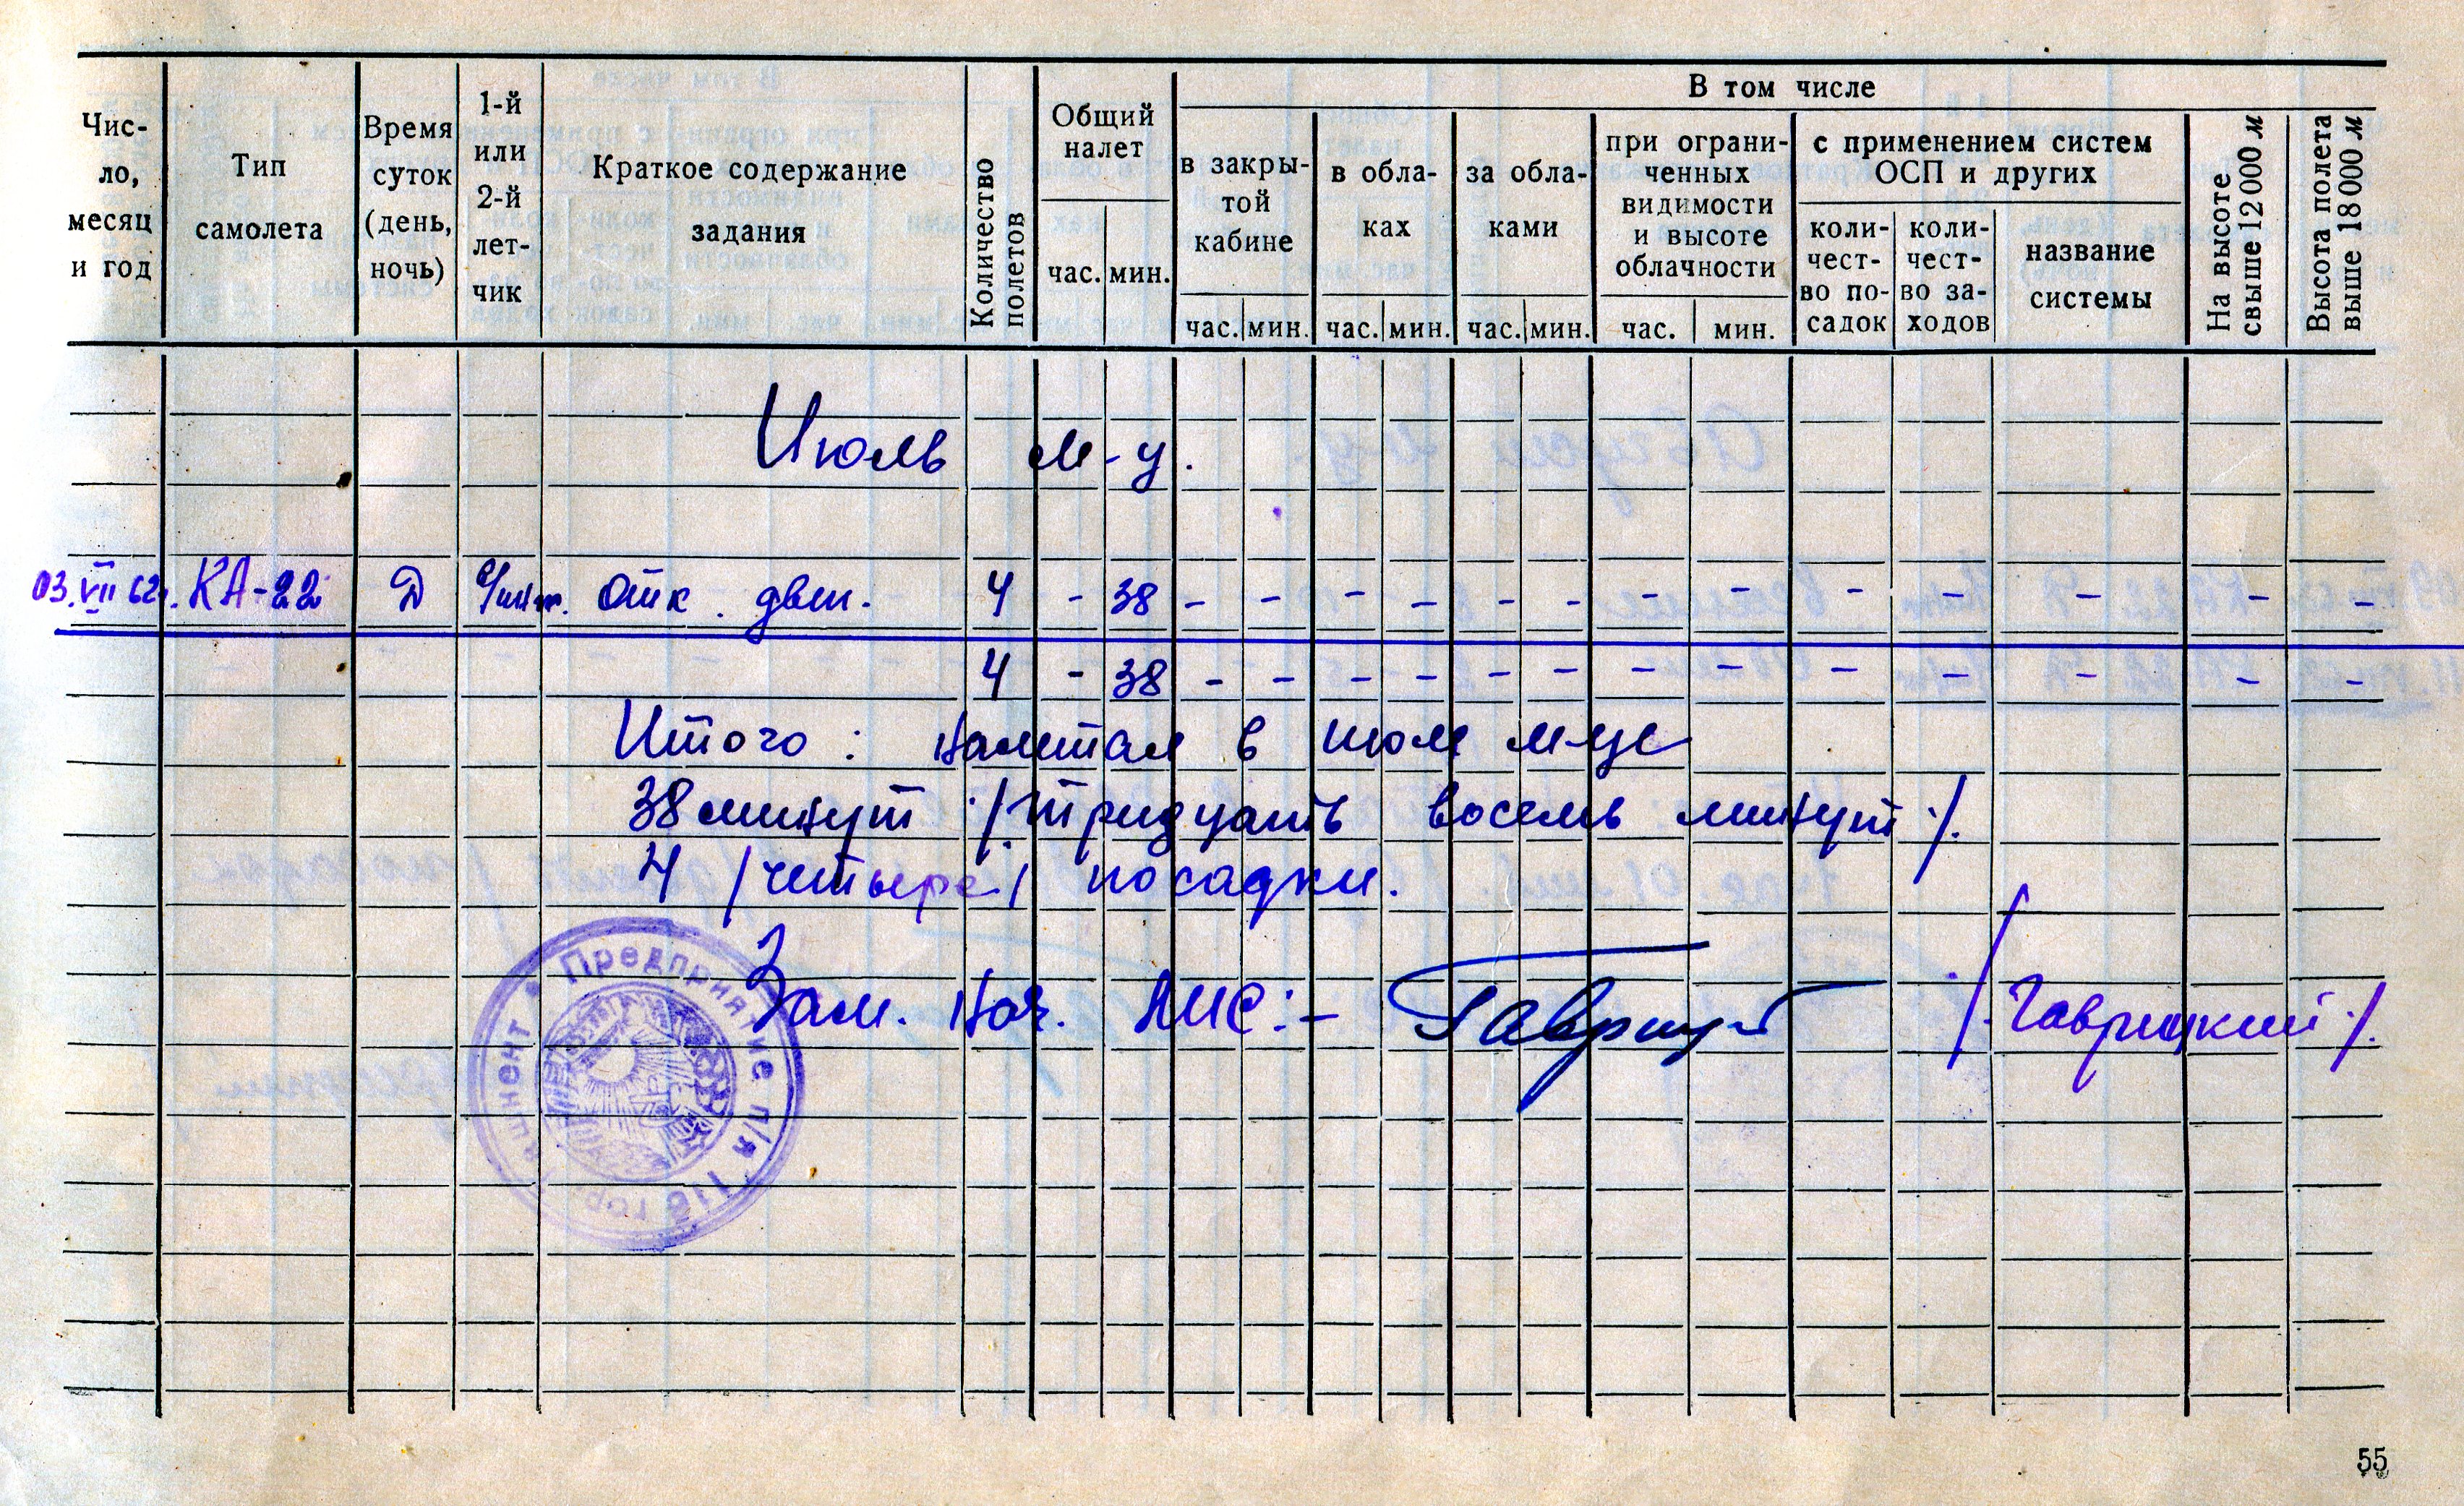 В том числе
Чис-
ло,
месяц
и год
Тип
самолета
Время
суток
(день,
ночь)
1-й
или
2-й
лет-
чик
Краткое содержание
задания
Количество
полетов
Общий
налет
час. мин.
в закры-
той
кабине
час. мин.
в обла-
ках
час. мин.
за обла-
ками
час. мин.
при ограни-
ченных
видимости
и высоте
облачности
час. мин.
с применением систем
ОСП и других
коли-
чест-
во по-
садок
коли-
чест-
во за-
ходов
название
системы
На высоте
свыше 12 000 м
Высота полета
выше 18 000 м
Июль м-ц.
03.VII 62г. КА-22 Д Отк. двиг. 4 - 38 - - - - - - - - - - - - -
4 - 38 - - - - - - - - - - - - -
Итого: налетал в июле м-це
38 минут /тридцать восемь минут/.
4 /четыре/ посадки.
Зам. нач. ЛИС:- Гавриц /Гаврицкий/.
Предприятие п/я 116 гор. Ташкент
55